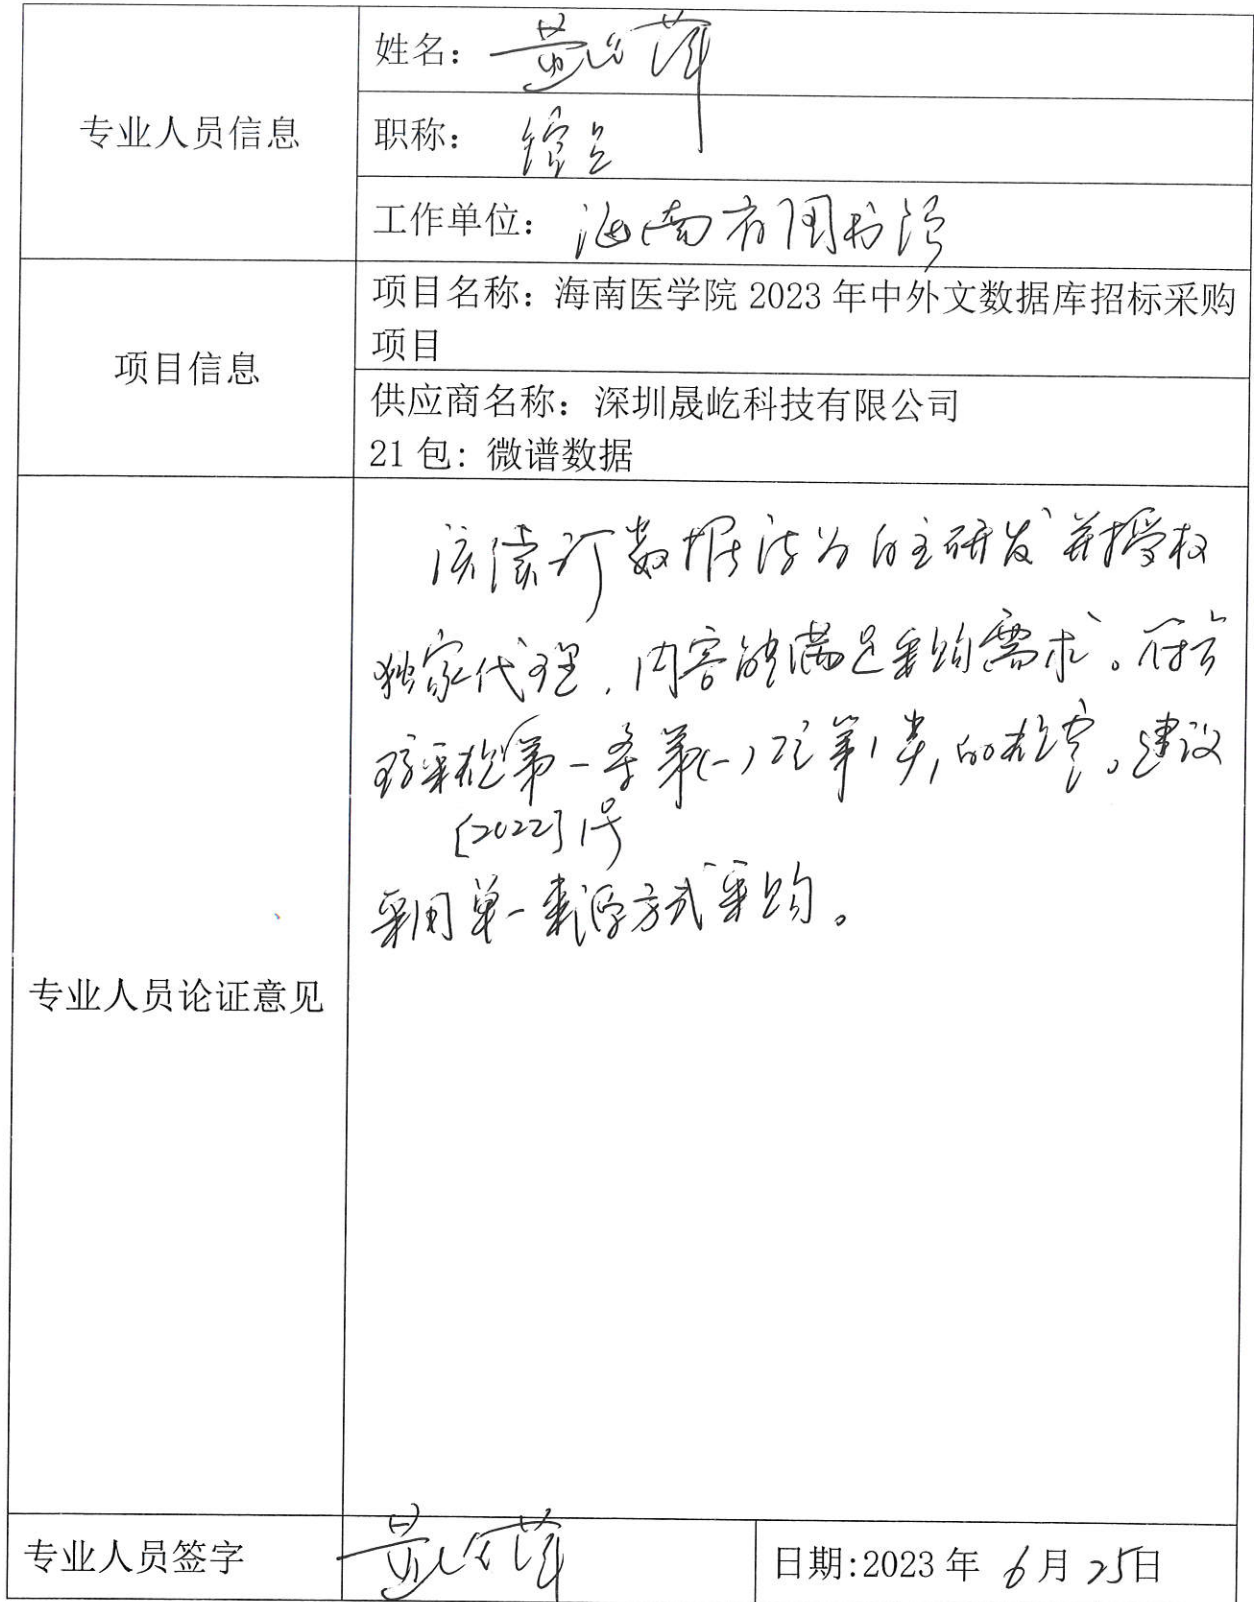 专业人员信息
姓名：黄
职称：馆员
工作单位：海南省图书馆
项目信息
项目名称：海南医学院 2023 年中外文数据库招标采购
项目
供应商名称：深圳晟屹科技有限公司
21 包：微谱数据
专业人员论证意见
该续订数据库为自主研发并授权
独家代理，内容能满足采购需求。符合
琼采规第一条第(一)项第1类，的规定。建议
[2022]1号
采用单一来源方式采购。
专业人员签字
黄
日期:2023 年 6月 25日